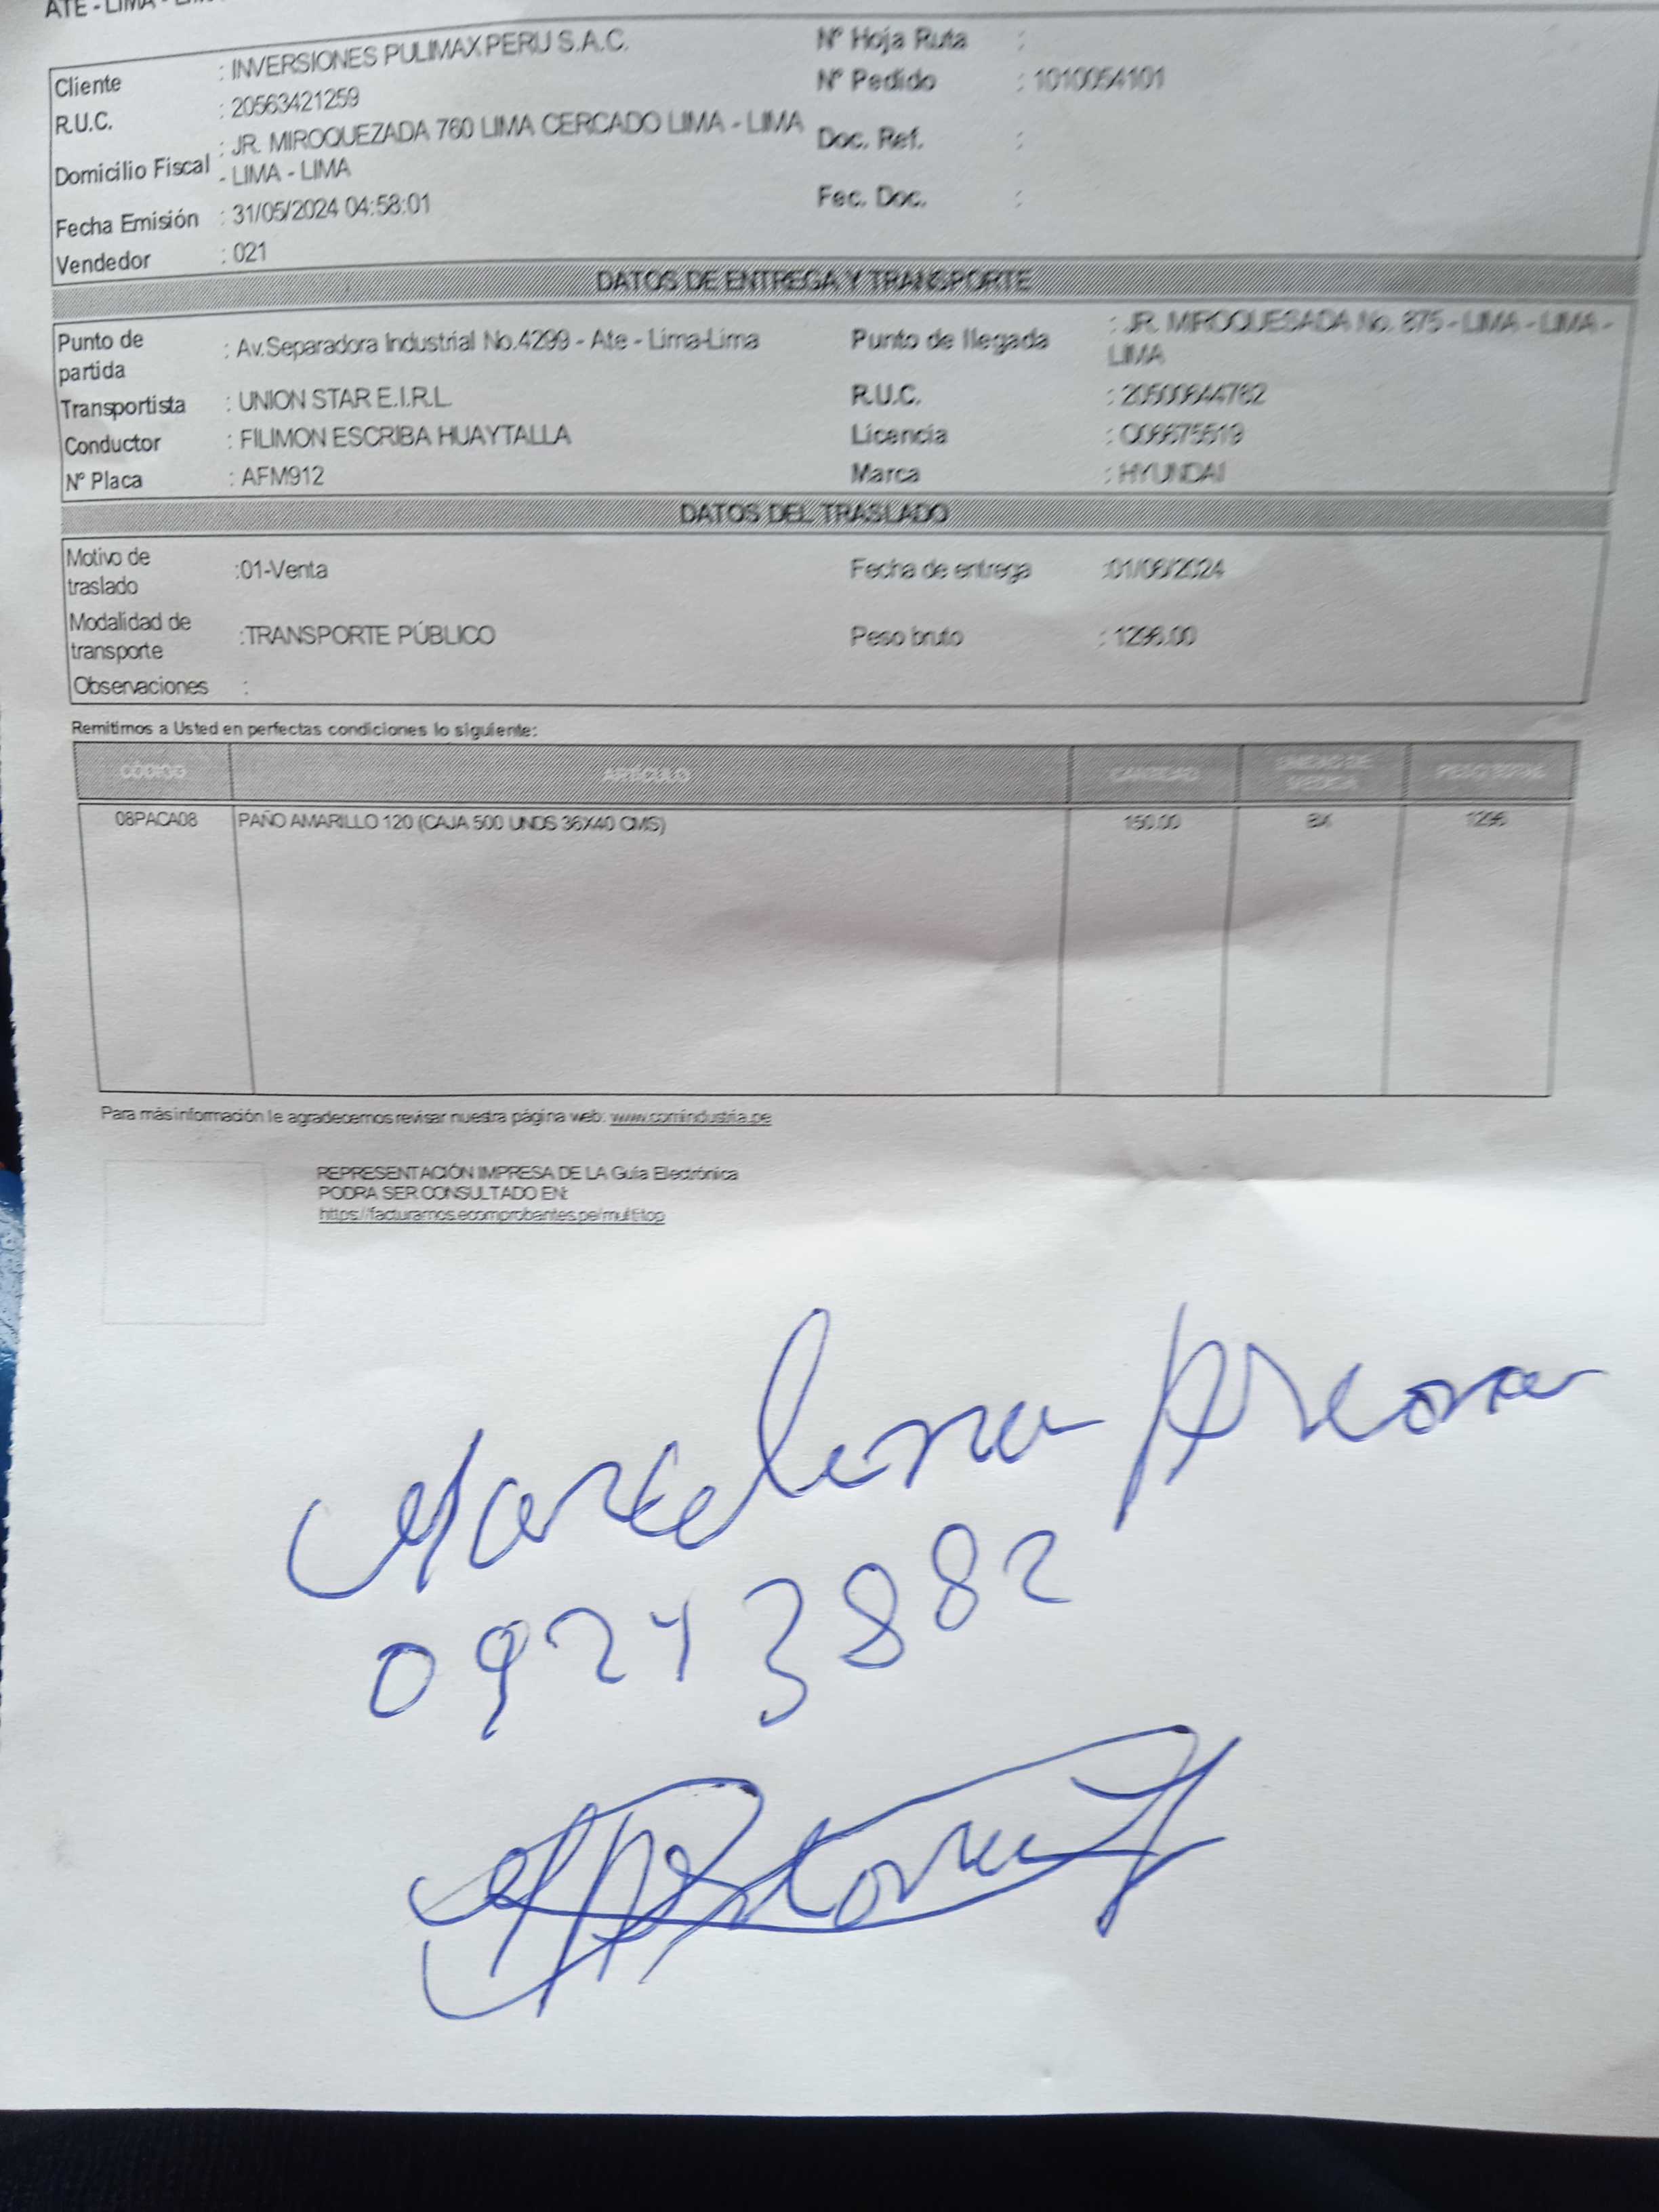 ATE - LIMA -
Cliente : INVERSIONES PULIMAX PERU S.A.C. Nº Hoja Ruta :
R.U.C. : 20563421259 Nº Pedido : 1010054101
Domicilio Fiscal : JR. MIROQUEZADA 760 LIMA CERCADO LIMA - LIMA Doc. Ref. :
- LIMA - LIMA
Fecha Emisión : 31/05/2024 04:58:01 Fec. Doc. :
Vendedor : 021
DATOS DE ENTREGA Y TRANSPORTE
Punto de partida : Av.Separadora Industrial No.4299 - Ate - Lima-Lima Punto de llegada : JR. MIROQUESADA No. 875 - LIMA - LIMA - LIMA
Transportista : UNION STAR E.I.R.L. R.U.C. : 20500644762
Conductor : FILIMON ESCRIBA HUAYTALLA Licencia : Q08675519
Nº Placa : AFM912 Marca : HYUNDAI
DATOS DEL TRASLADO
Motivo de traslado :01-Venta Fecha de entrega :01/06/2024
Modalidad de transporte :TRANSPORTE PÚBLICO Peso bruto : 1296.00
Observaciones :
Remitimos a Usted en perfectas condiciones lo siguiente:
CÓDIGO ARTÍCULO CANTIDAD UNIDAD DE MEDIDA PESO TOTAL
08PACA08 PAÑO AMARILLO 120 (CAJA 500 UNDS 36X40 CMS) 150.00 BX 1296
Para más información le agradecemos revisar nuestra página web: www.comindustria.pe
REPRESENTACIÓN IMPRESA DE LA Guía Electrónica
PODRA SER CONSULTADO EN:
https://facturamos.ecomprobantes.pe/multitop
Marcelina
09243882